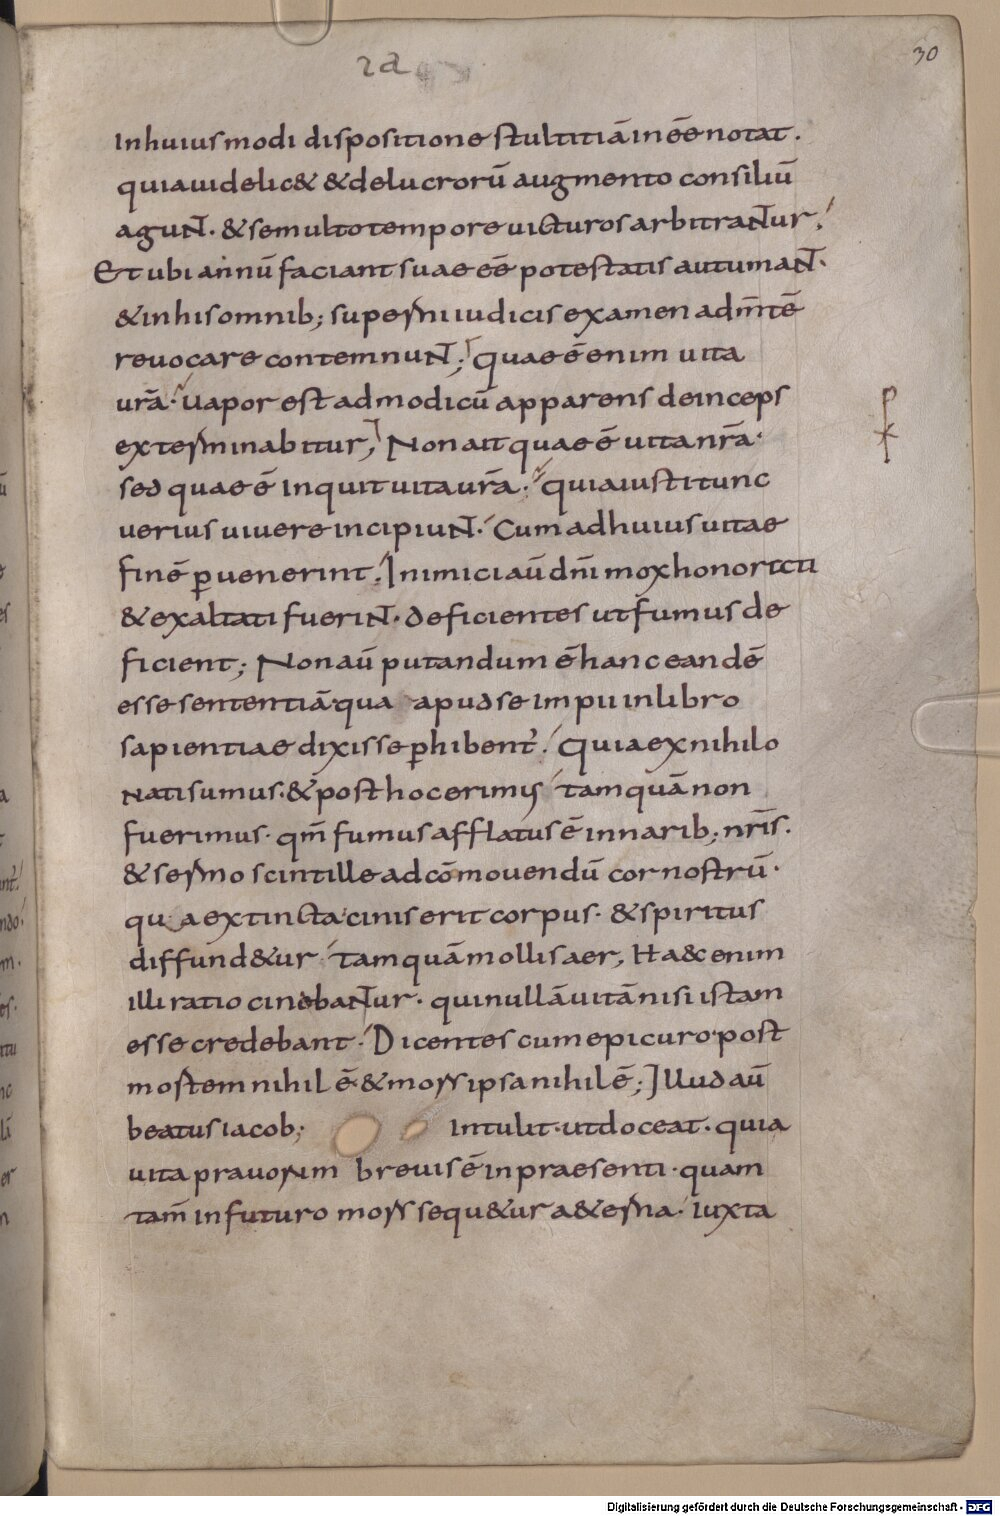 2a
30
Inhuiusmodi dispositione stultitiā inēe notat.
quia uidelic& &delucrorū augmento consiliū
aguNT. &semulto tempore uicturos arbitraNTur;
Et ubi annū faciant suae ēe potestatis autumaNT.
&inhis omnib; superni iudicis examen adm̄tē
reuocare contemnuNT; quae ē enim uita
ur̄a. Uapor est admodicū apparens deinceps
exterminabitur; Non ait quae ē uita nr̄a.
sed quae ē inquit uita ur̄a. quia iusti tunc
uerius uiuere incipiuNT. Cum adhuius uitae
finē ꝑuenerint. Inimici aū dn̄i mox honoricti
&exaltati fueriNT. deficientes ut fumus de
ficient; Non aū putandum ē hanc eandē
esse sententiā. qua apud se impii inlibro
sapientiae dixisse ꝑhibent̄. Quia exnihilo
nati sumus. &post hoc erimus tamquā non
fuerimus. qm̄ fumus afflatus ē innarib; nr̄is.
&sermo scintille adcōmouendū cor nostrū.
qu a extincta cinis erit corpus. &spiritus
diffund&ur tamquā mollis aer, Haec enim
illi ratiocinabaNTur. qui nullā uitā nisi istam
esse credebant. Dicentes cum epicuro. post
mortem nihil ē. &mors ipsa nihil ē; Illud aū
beatus iacob; intulit. ut doceat. quia
uita prauorum breuis ē inpraesenti. quam
tam̄ infuturo mors sequ&ur a&erna. iuxta
Digitalisierung gefördert durch die Deutsche Forschungsgemeinschaft - DFG